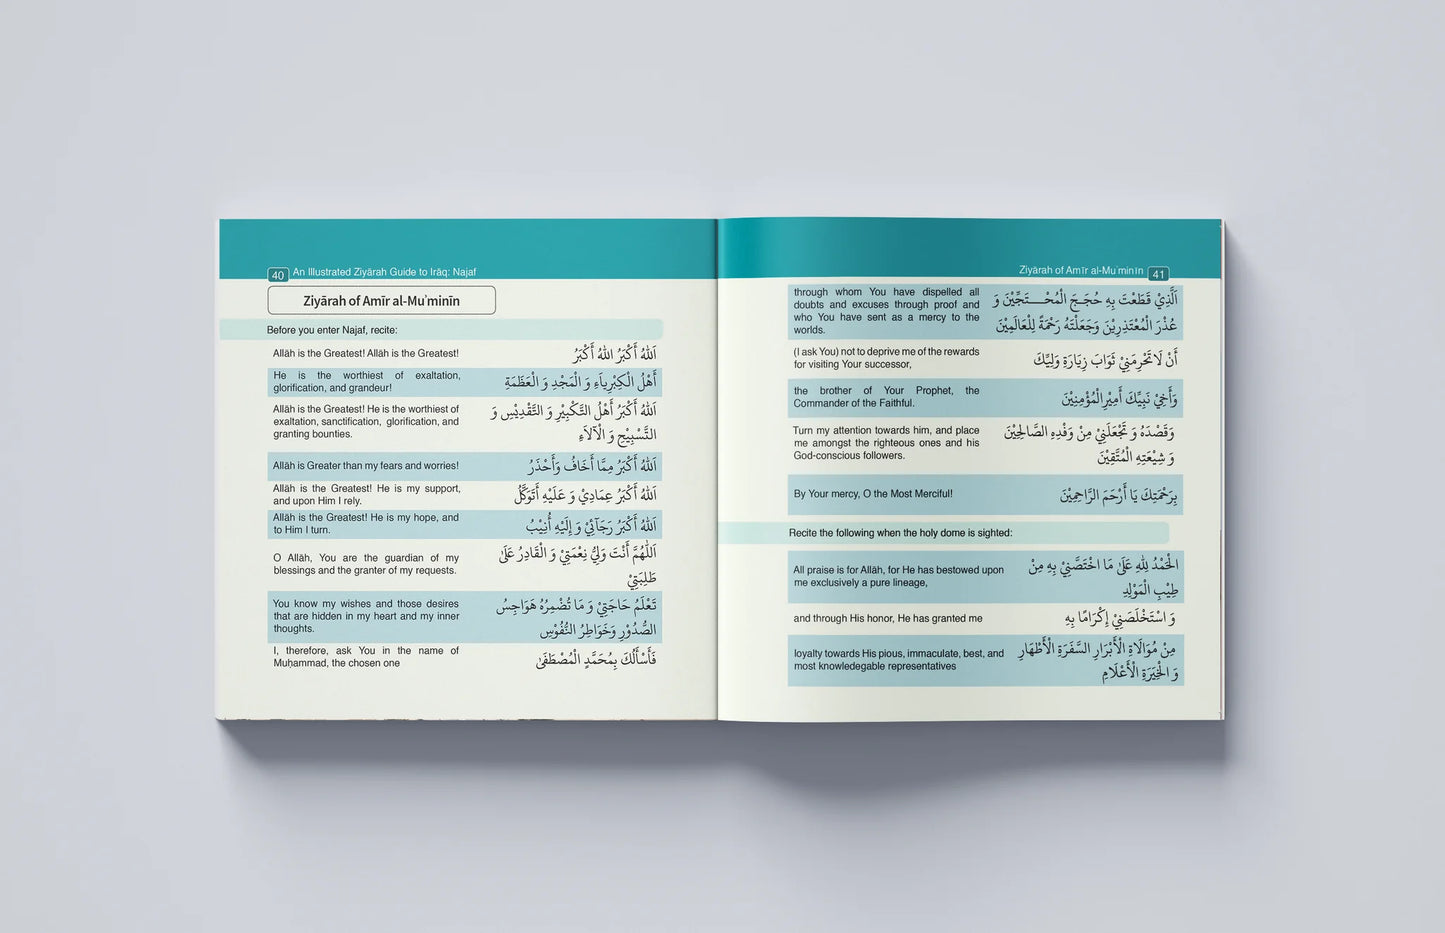 40 An Illustrated Ziyārah Guide to Irāq: Najaf
Ziyārah of Amīr al-Muʾminīn
Before you enter Najaf, recite:
Allāh is the Greatest! Allāh is the Greatest!
اَللّٰهُ أَكْبَرُ اَللّٰهُ أَكْبَرُ
He is the worthiest of exaltation,
glorification, and grandeur!
أَهْلُ الْكِبْرِيَاءِ وَ الْمَجْدِ وَ الْعَظَمَةِ
Allāh is the Greatest! He is the worthiest of
exaltation, sanctification, glorification, and
granting bounties.
اَللّٰهُ أَكْبَرُ أَهْلُ التَّكْبِيْرِ وَ التَّقْدِيْسِ وَ
التَّسْبِيْحِ وَ الْآلَاءِ
Allāh is Greater than my fears and worries!
اَللّٰهُ أَكْبَرُ مِمَّا أَخَافُ وَأَحْذَرُ
Allāh is the Greatest! He is my support,
and upon Him I rely.
اَللّٰهُ أَكْبَرُ عِمَادِيْ وَ عَلَيْهِ أَتَوَكَّلُ
Allāh is the Greatest! He is my hope, and
to Him I turn.
اَللّٰهُ أَكْبَرُ رَجَآئِيْ وَ إِلَيْهِ أُنِيْبُ
O Allāh, You are the guardian of my
blessings and the granter of my requests.
اَللّٰهُمَّ أَنْتَ وَلِيُّ نِعْمَتِيْ وَ الْقَادِرُ عَلَىٰ
طَلِبَتِيْ
You know my wishes and those desires
that are hidden in my heart and my inner
thoughts.
تَعْلَمُ حَاجَتِيْ وَ مَا تُضْمِرُهُ هَوَاجِسُ
الصُّدُوْرِ وَخَوَاطِرُ النُّفُوْسِ
I, therefore, ask You in the name of
Muḥammad, the chosen one
فَأَسْأَلُكَ بِمُحَمَّدٍ الْمُصْطَفَىٰ
Ziyārah of Amīr al-Muʾminīn 41
through whom You have dispelled all
doubts and excuses through proof and
who You have sent as a mercy to the
worlds.
اَلَّذِيْ قَطَعْتَ بِهِ حُجَجَ الْمُحْتَجِّيْنَ وَ
عُذْرَ الْمُعْتَذِرِيْنَ وَجَعَلْتَهُ رَحْمَةً لِلْعَالَمِيْنَ
(I ask You) not to deprive me of the rewards
for visiting Your successor,
أَنْ لَا تَحْرِمَنِيْ ثَوَابَ زِيَارَةِ وَلِيِّكَ
the brother of Your Prophet, the
Commander of the Faithful.
وَأَخِيْ نَبِيِّكَ أَمِيْرِالْمُؤْمِنِيْنَ
Turn my attention towards him, and place
me amongst the righteous ones and his
God-conscious followers.
وَقَصْدَهُ وَ تَجْعَلَنِيْ مِنْ وَفْدِهِ الصَّالِحِيْنَ
وَ شِيْعَتِهِ الْمُتَّقِيْنَ
By Your mercy, O the Most Merciful!
بِرَحْمَتِكَ يَا أَرْحَمَ الرَّاحِمِيْنَ
Recite the following when the holy dome is sighted:
All praise is for Allāh, for He has bestowed upon
me exclusively a pure lineage,
الْحَمْدُ لِلّٰهِ عَلَىٰ مَا اخْتَصَّنِيْ بِهِ مِنْ
طِيْبِ الْمَوْلِدِ
and through His honor, He has granted me
وَ اسْتَخْلَصَنِيْ إِكْرَامًا بِهِ
loyalty towards His pious, immaculate, best, and
most knowledegable representatives
مِنْ مُوَالَاةِ الْأَبْرَارِ السَّفَرَةِ الْأَطْهَارِ
وَ الْخِيَرَةِ الْأَعْلَامِ